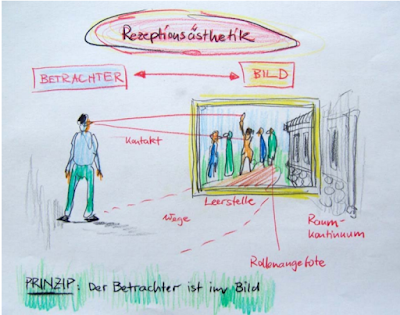 Rezeptionsästhetik
BETRACHTER
BILD
Kontakt
Leerstelle
Wege
Raum-
kontinuum
Rollenangebote
PRINZIP: Der Betrachter ist im Bild